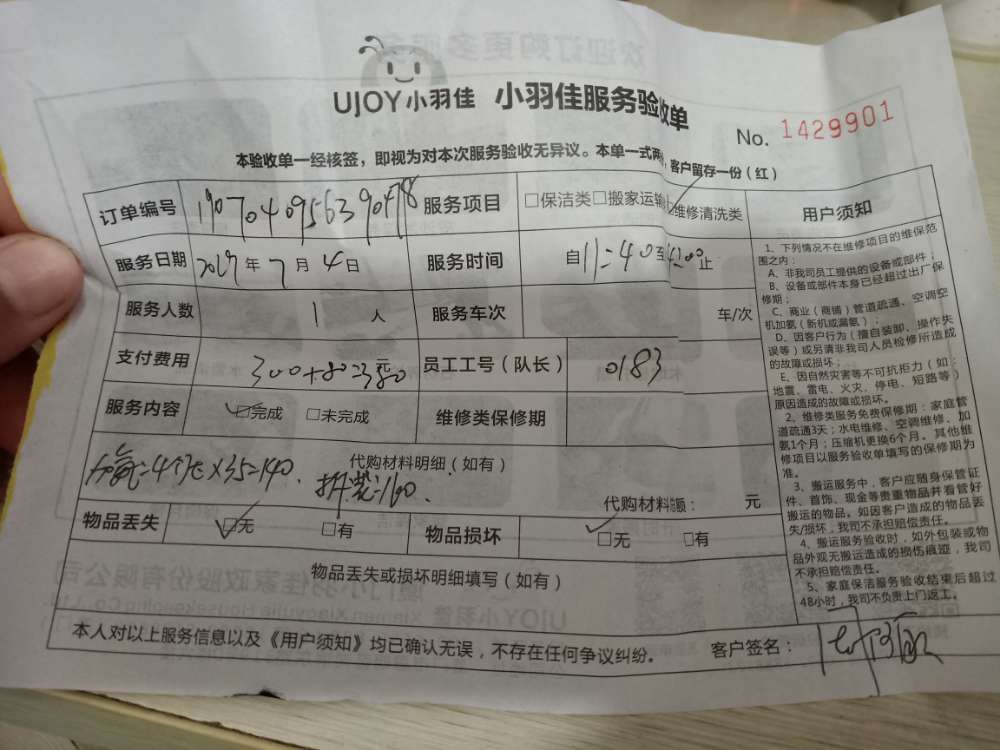 UJOY小羽佳 小羽佳服务验收单
No. 1429901
本验收单一经核签，即视为对本次服务验收无异议。本单一式两，客户留存一份（红）
订单编号 1907040956390478 服务项目 □保洁类□搬家运输 维修清洗类
服务日期 2019年7月4日 服务时间 自11:40至 止
服务人数 1 人 服务车次 车/次
支付费用 300+80 员工工号（队长） 0183
服务内容 ☑完成 □未完成 维修类保修期
加氟=4个压×35=140. 拆装=160. 代购材料明细（如有）
代购材料额： 元
物品丢失 ☑无 □有 物品损坏 ☑无 □有
物品丢失或损坏明细填写（如有）
本人对以上服务信息以及《用户须知》均已确认无误，不存在任何争议纠纷。 客户签名：
用户须知
1、下列情况不在维修项目的维保范
围之内：
A、非我司员工提供的设备或部件；
B、设备或部件本身已经超过出厂保
修期；
C、商业（商铺）管道疏通、空调空
机加氨（新机或漏氨）；
D、因客户行为（擅自装卸、操作失
误等）或另请非我司人员检修所造成
的故障或损坏；
E、因自然灾害等不可抗拒力（如：
地震、雷电、火灾、停电、短路等）
原因造成的故障或损坏。
2、维修类服务免费保修期：家庭管
道疏通3天；水电维修、空调维修、加
氨1个月；压缩机更换6个月。其他维
修项目以服务验收单填写的保修期为
准。
3、搬运服务中，客户应随身保管证
件、首饰、现金等贵重物品并看管好
搬运的物品。如因客户造成的物品丢
失/损坏，我司不承担赔偿责任。
4、搬运服务验收时，如外包装或物
品外观无搬运造成的损伤痕迹，我司
不承担赔偿责任。
5、家庭保洁服务验收结束后超过
48小时，我司不负责上门返工。